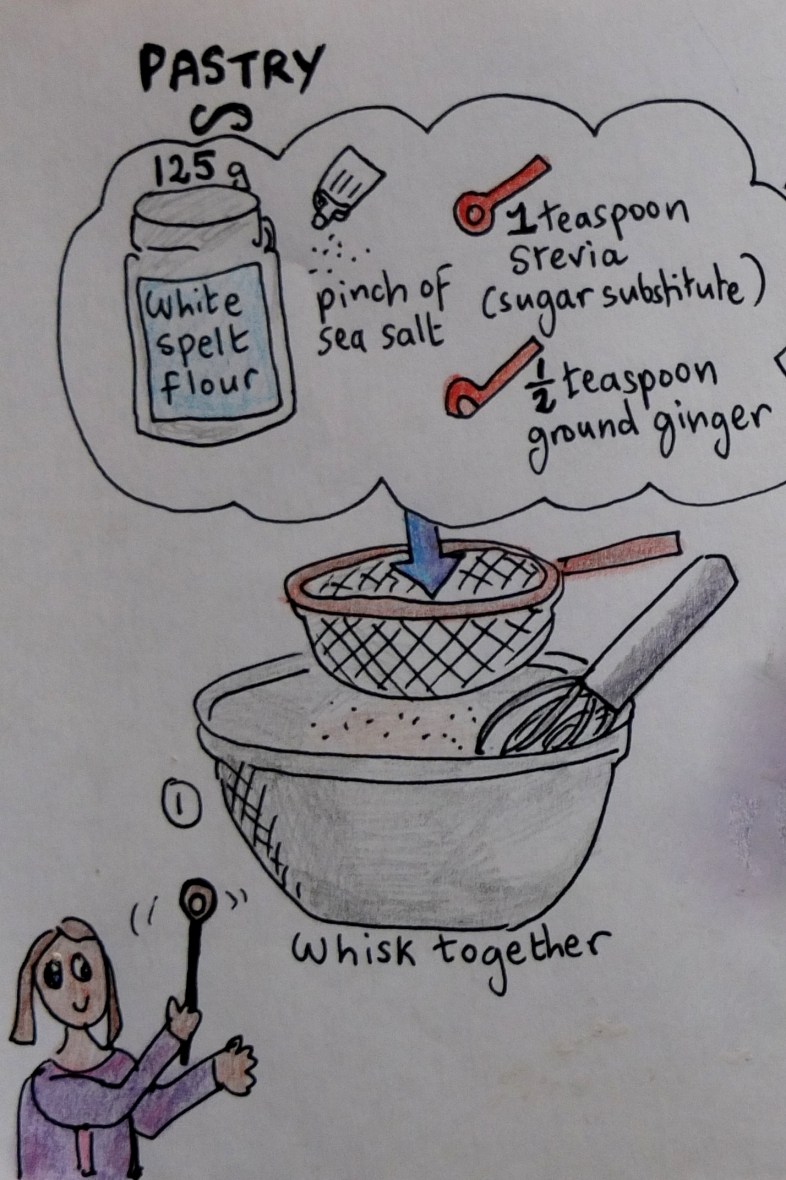 PASTRY
125 g
White
spelt
flour
pinch of
sea salt
1 teaspoon
stevia
(sugar substitute)
1/2 teaspoon
ground ginger
1
Whisk together